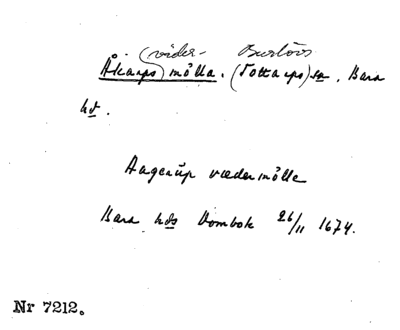 (väder- Burlövs
Åkarps) mölla. (Tottarps) sn, Bara
hd.
Aagerup vædermölle
Bara hds Dombok 26/11 1674.
Nr 7212.